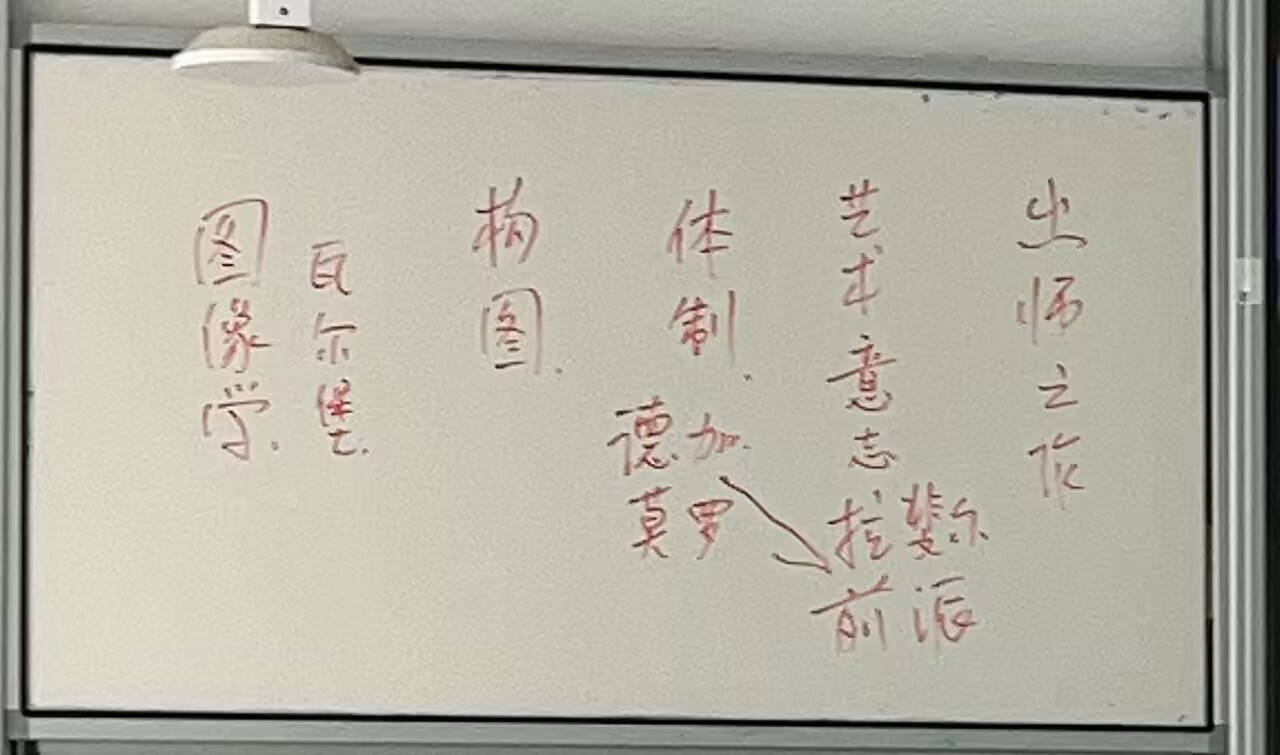 出师之作
艺术意志
拉斐尔
前派
体制.
德加.
莫罗
构图.
瓦尔堡.
图像学.